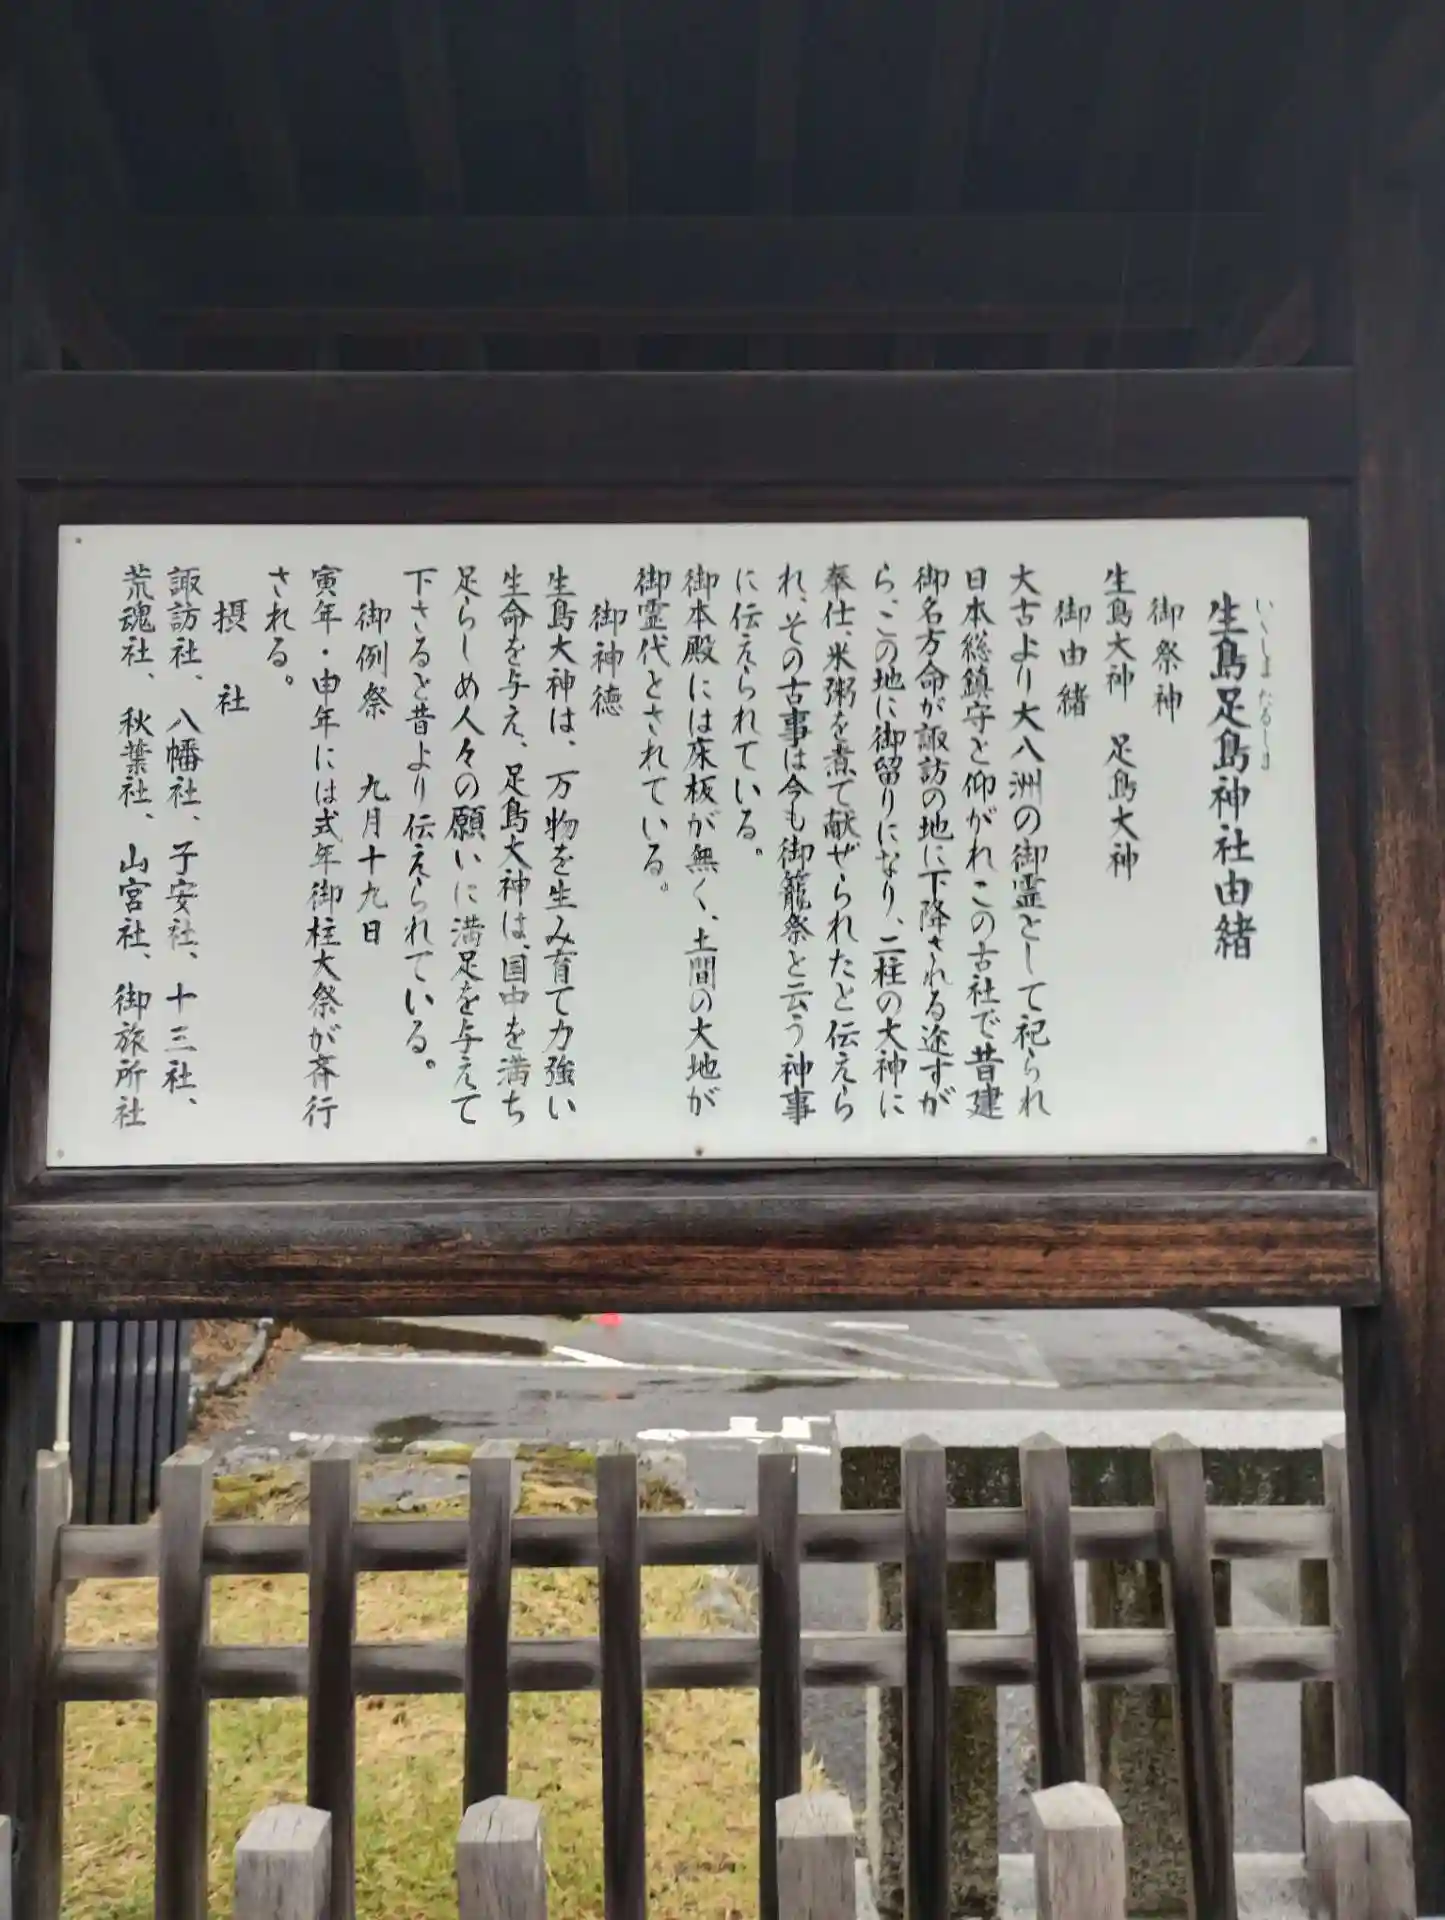 生島足島神社由緒
いくしまたるしま
御祭神
生島大神 足島大神
御由緒
大古より大八洲の御霊として祀られ
日本総鎮守と仰がれこの古社で昔建
御名方命が諏訪の地に下降される途すが
ら、この地に御留りになり、二柱の大神に
奉仕、米粥を煮て献ぜられたと伝えら
れ、その古事は今も御籠祭と云う神事
に伝えられている。
御本殿には床板が無く、土間の大地が
御霊代とされている。
御神徳
生島大神は、万物を生み育て力強い
生命を与え、足島大神は、国中を満ち
足らしめ人々の願いに満足を与えて
下さると昔より伝えられている。
御例祭 九月十九日
寅年・申年には式年御柱大祭が斉行
される。
摂社
諏訪社、八幡社、子安社、十三社、
荒魂社、秋葉社、山宮社、御旅所社